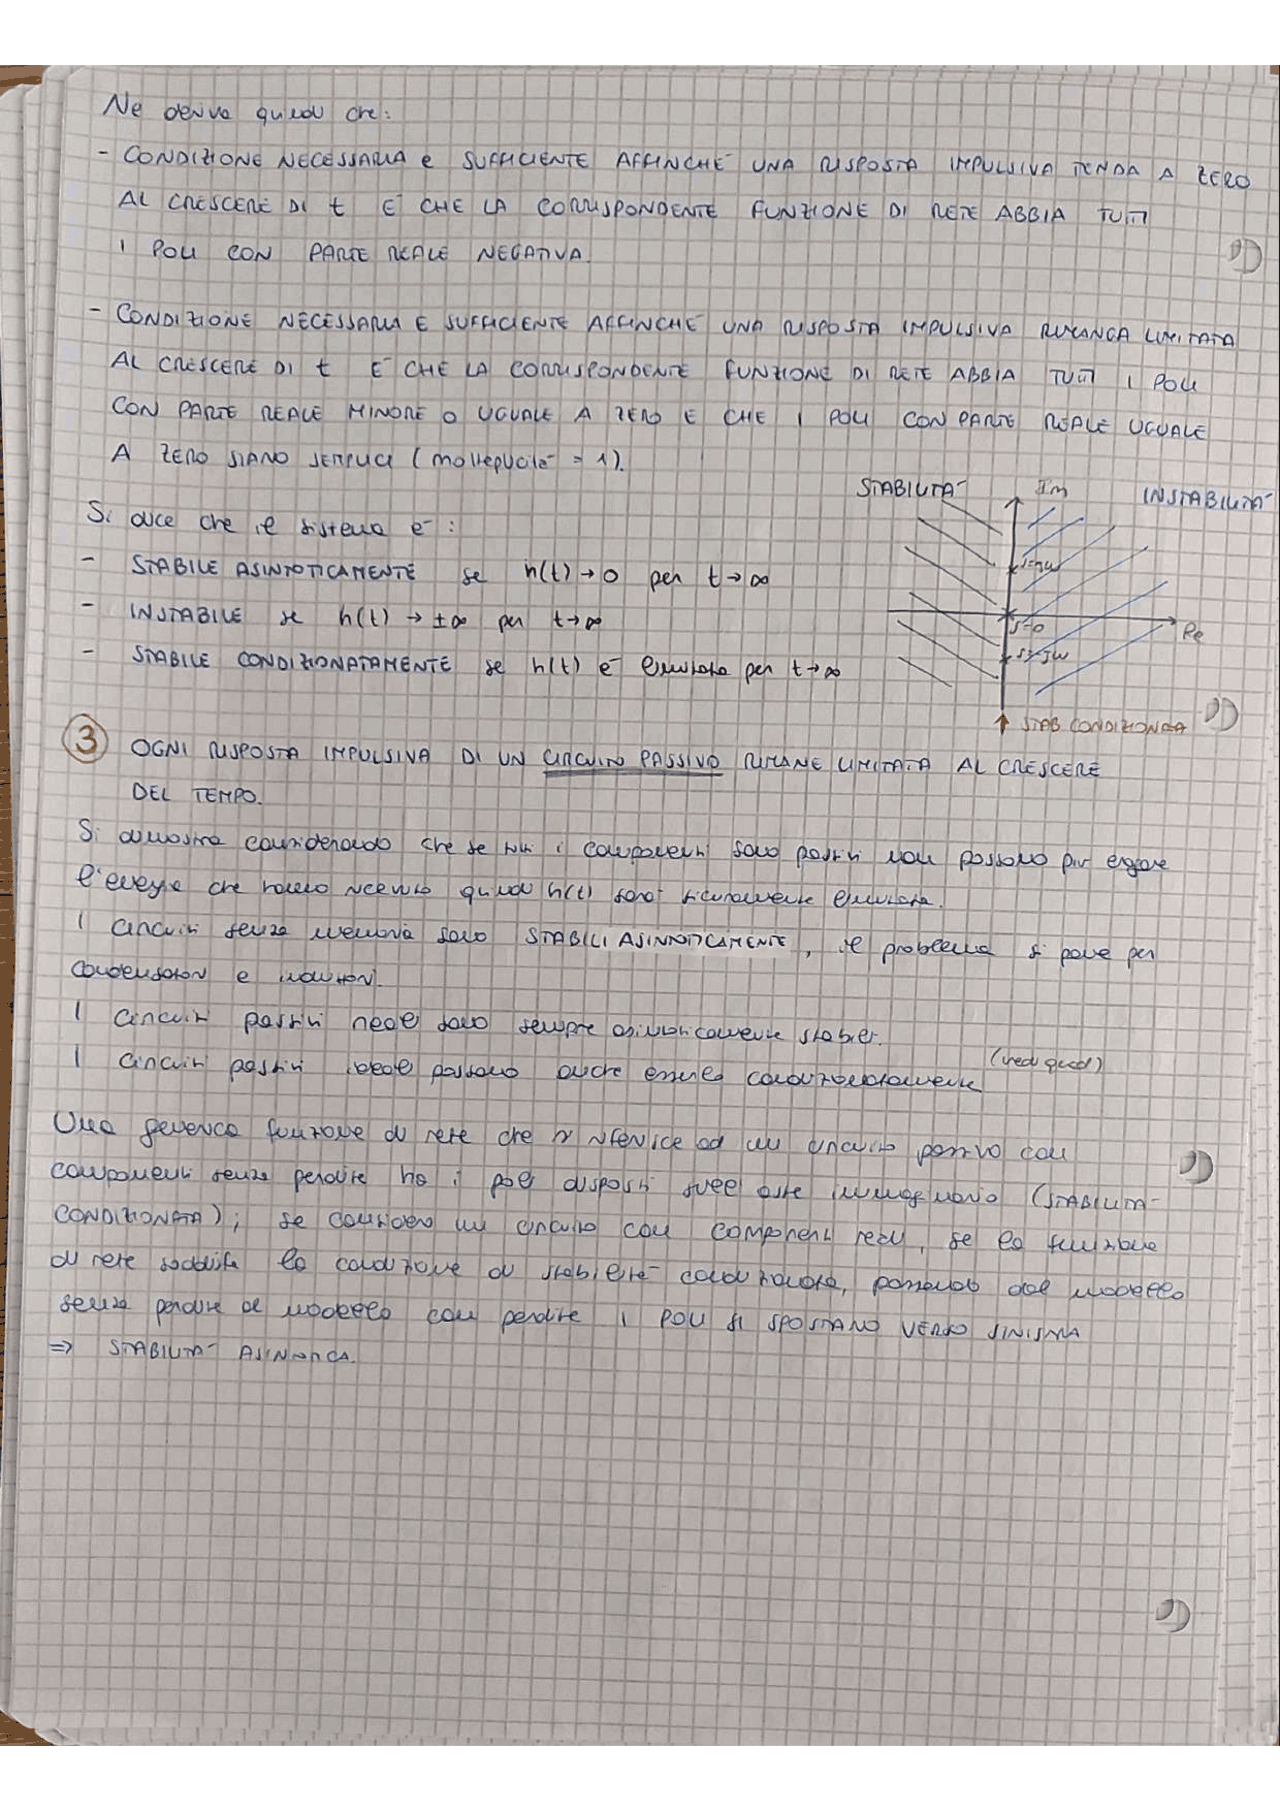 Ne deriva quindi che:
- CONDIZIONE NECESSARIA e SUFFICIENTE AFFINCHÉ UNA RISPOSTA IMPULSIVA TENDA A ZERO
AL CRESCERE DI t È CHE LA CORRISPONDENTE FUNZIONE DI RETE ABBIA TUTTI
I POLI CON PARTE REALE NEGATIVA.
- CONDIZIONE NECESSARIA E SUFFICIENTE AFFINCHÉ UNA RISPOSTA IMPULSIVA RIMANGA LIMITATA
AL CRESCERE DI t È CHE LA CORRISPONDENTE FUNZIONE DI RETE ABBIA TUTTI I POLI
CON PARTE REALE MINORE O UGUALE A ZERO E CHE I POLI CON PARTE REALE UGUALE
A ZERO SIANO SEMPLICI (molteplicità = 1).
STABILITÀ Im INSTABILITÀ
Si dice che il sistema è:
- STABILE ASINTOTICAMENTE se h(t) → 0 per t → ∞
s=jω
- INSTABILE se h(t) → ±∞ per t → ∞
s=0 Re
- STABILE CONDIZIONATAMENTE se h(t) è limitata per t → ∞
s=-jω
↑ STAB CONDIZIONATA
3 OGNI RISPOSTA IMPULSIVA DI UN CIRCUITO PASSIVO RIMANE LIMITATA AL CRESCERE
DEL TEMPO.
Si dimostra considerando che se tutti i componenti sono passivi non possono più erogare
l'energia che hanno ricevuto quindi h(t) sarà sicuramente limitata.
I circuiti senza memoria sono STABILI ASINTOTICAMENTE, il problema si pone per
condensatori e induttori.
I circuiti passivi reali sono sempre asintoticamente stabili.
I circuiti passivi ideali possono anche esserlo condizionatamente (vedi quad)
Una generica funzione di rete che si riferisce ad un circuito passivo con
componenti senza perdite ha i poli disposti sull'asse immaginario (STABILITÀ
CONDIZIONATA); se considero un circuito con componenti reali, se la funzione
di rete soddisfa la condizione di stabilità condizionata, passando dal modello
senza perdite al modello con perdite i POLI SI SPOSTANO VERSO SINISTRA
⇒ STABILITÀ ASINTOTICA.